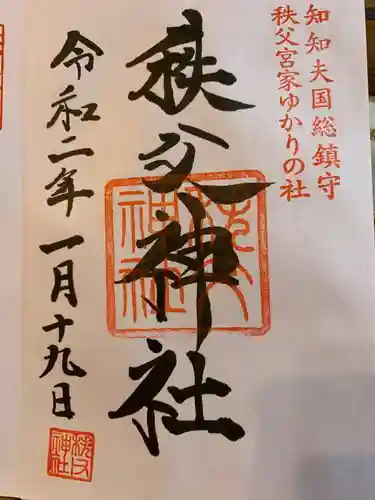 知知夫国総鎮守
秩父宮家ゆかりの社
秩父神社
秩父神社
令和二年一月十九日
秩父神社